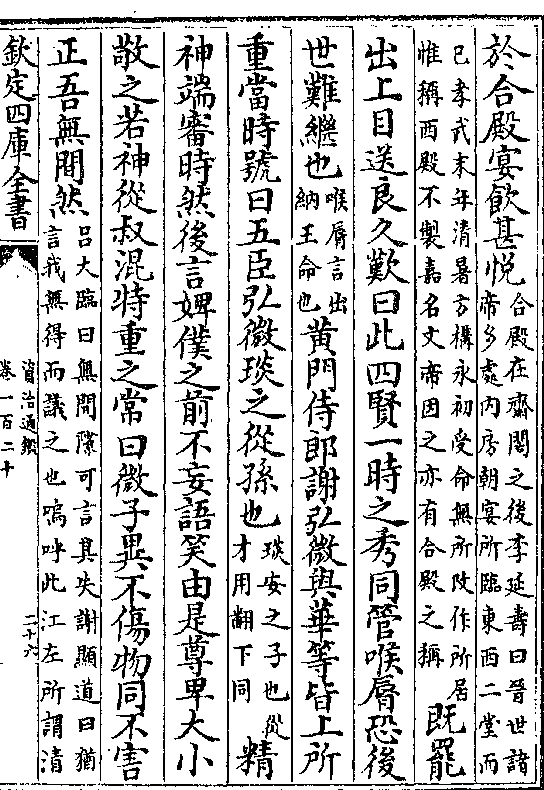 於合殿宴飲甚悅合殿在齋閣之後李延壽曰晉世諸帝多處内房朝宴所臨東西二堂而
已孝武末年清暑方構永初受命無所改作所居惟稱西殿不製嘉名文帝因之亦有合殿之稱既罷
出上目送良久歎曰此四賢一時之秀同管喉脣恐後
世難繼也喉脣言出納王命也黄門侍郎謝弘微與華等皆上所
重當時號曰五臣弘微琰之從孫也琰安之子也從才用翻下同精
神端審時然後言婢僕之前不妄語笑由是尊卑大小
敬之若神從叔混特重之常曰微子異不傷物同不害
正吾無間然呂大臨曰無間隙可言其失謝顯道曰猶言我無得而議之也嗚呼此江左所謂清
欽定四庫全書 資治通鑑 卷一百二十 二十六